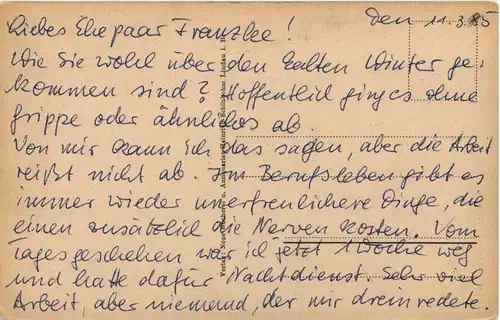 den 11.3.85
Liebes Ehepaar Franzke!
Wie Sie wohl über den kalten Winter ge-
kommen sind? Hoffentlich ging es ohne
Grippe oder ähnliches ab.
Von mir kann ich das sagen, aber die Arbeit
reißt nicht ab. Im Berufsleben gibt es
immer wieder unerfreulichere Dinge, die
einen zusätzlich die Nerven kosten. Vom
Tagesgeschehen war ich jetzt 1 Woche weg
und hatte dafür Nachtdienst. Sehr viel
Arbeit, aber niemand, der mir dreinredete.